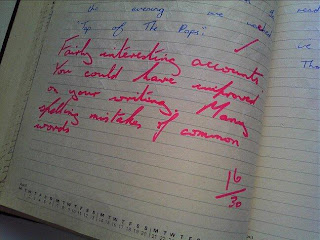 the evening we
Top of The Pops".
Fairly interesting accounts.
You could have improved
on your writing. Many
spelling mistakes of common
words
16
30